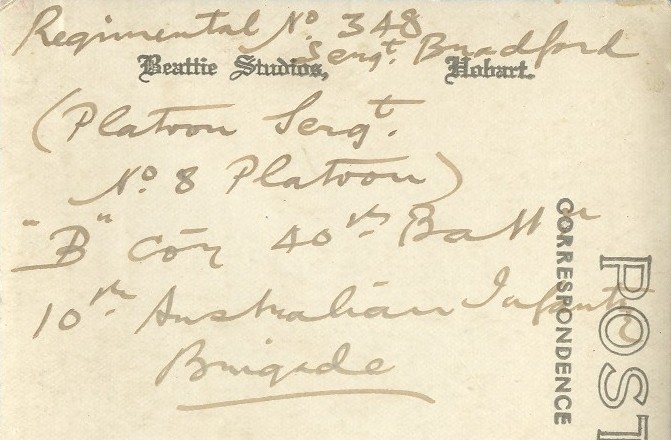 Regimental No 348
Sergt. Bradford
Beattie Studios, Hobart.
(Platoon Sergt.
No 8 Platoon)
"B" Coy 40th Battn
10th Australian Infantry
Brigade
CORRESPONDENCE
POST